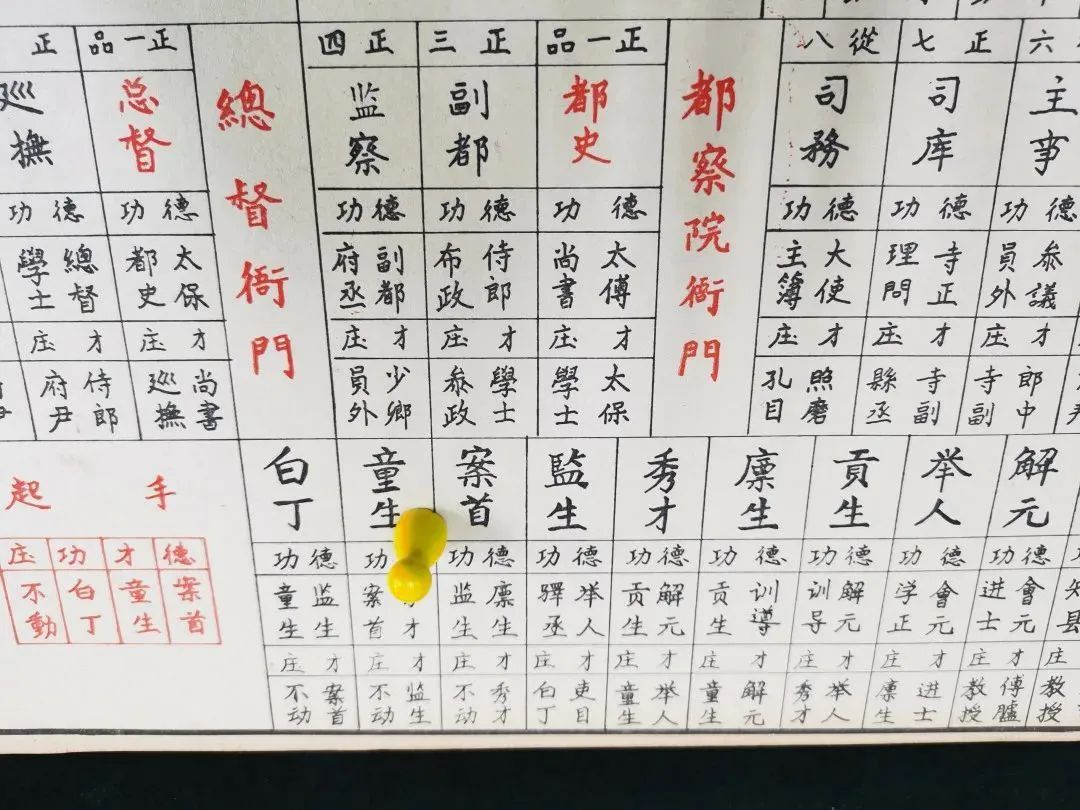 六
主事
德功
叅議
員外
才庄
郎中
寺副
正七
司库
德功
寺正
理問
才庄
寺副
縣丞
從八
司務
德功
大使
主簿
才庄
照磨
孔目
都察院衙門
正一品
都史
德功
太傅
尚書
才庄
太保
學士
正三
副都
德功
侍郎
布政
才庄
學士
叅政
正四
监察
德功
副都
府丞
才庄
少鄉
員外
總督衙門
正一品
总督
德功
太保
都史
才庄
尚書
廵撫
正
廵撫
德功
總督
學士
才庄
侍郎
府尹
知县
庄
教授
解元
德功
會元
进士
才庄
傅臚
教授
举人
德功
會元
学正
才庄
进士
廪生
贡生
德功
解元
训导
才庄
举人
秀才
廪生
德功
训導
贡生
才庄
解元
童生
秀才
德功
解元
贡生
才庄
举人
童生
監生
德功
举人
驛丞
才庄
吏目
白丁
案首
德功
廪生
监生
才庄
秀才
不动
童生
功
才
案首
才庄
监生
不动
白丁
德功
监生
童生
才庄
案首
不动
起手
德才功庄
案首
童生
白丁
不動